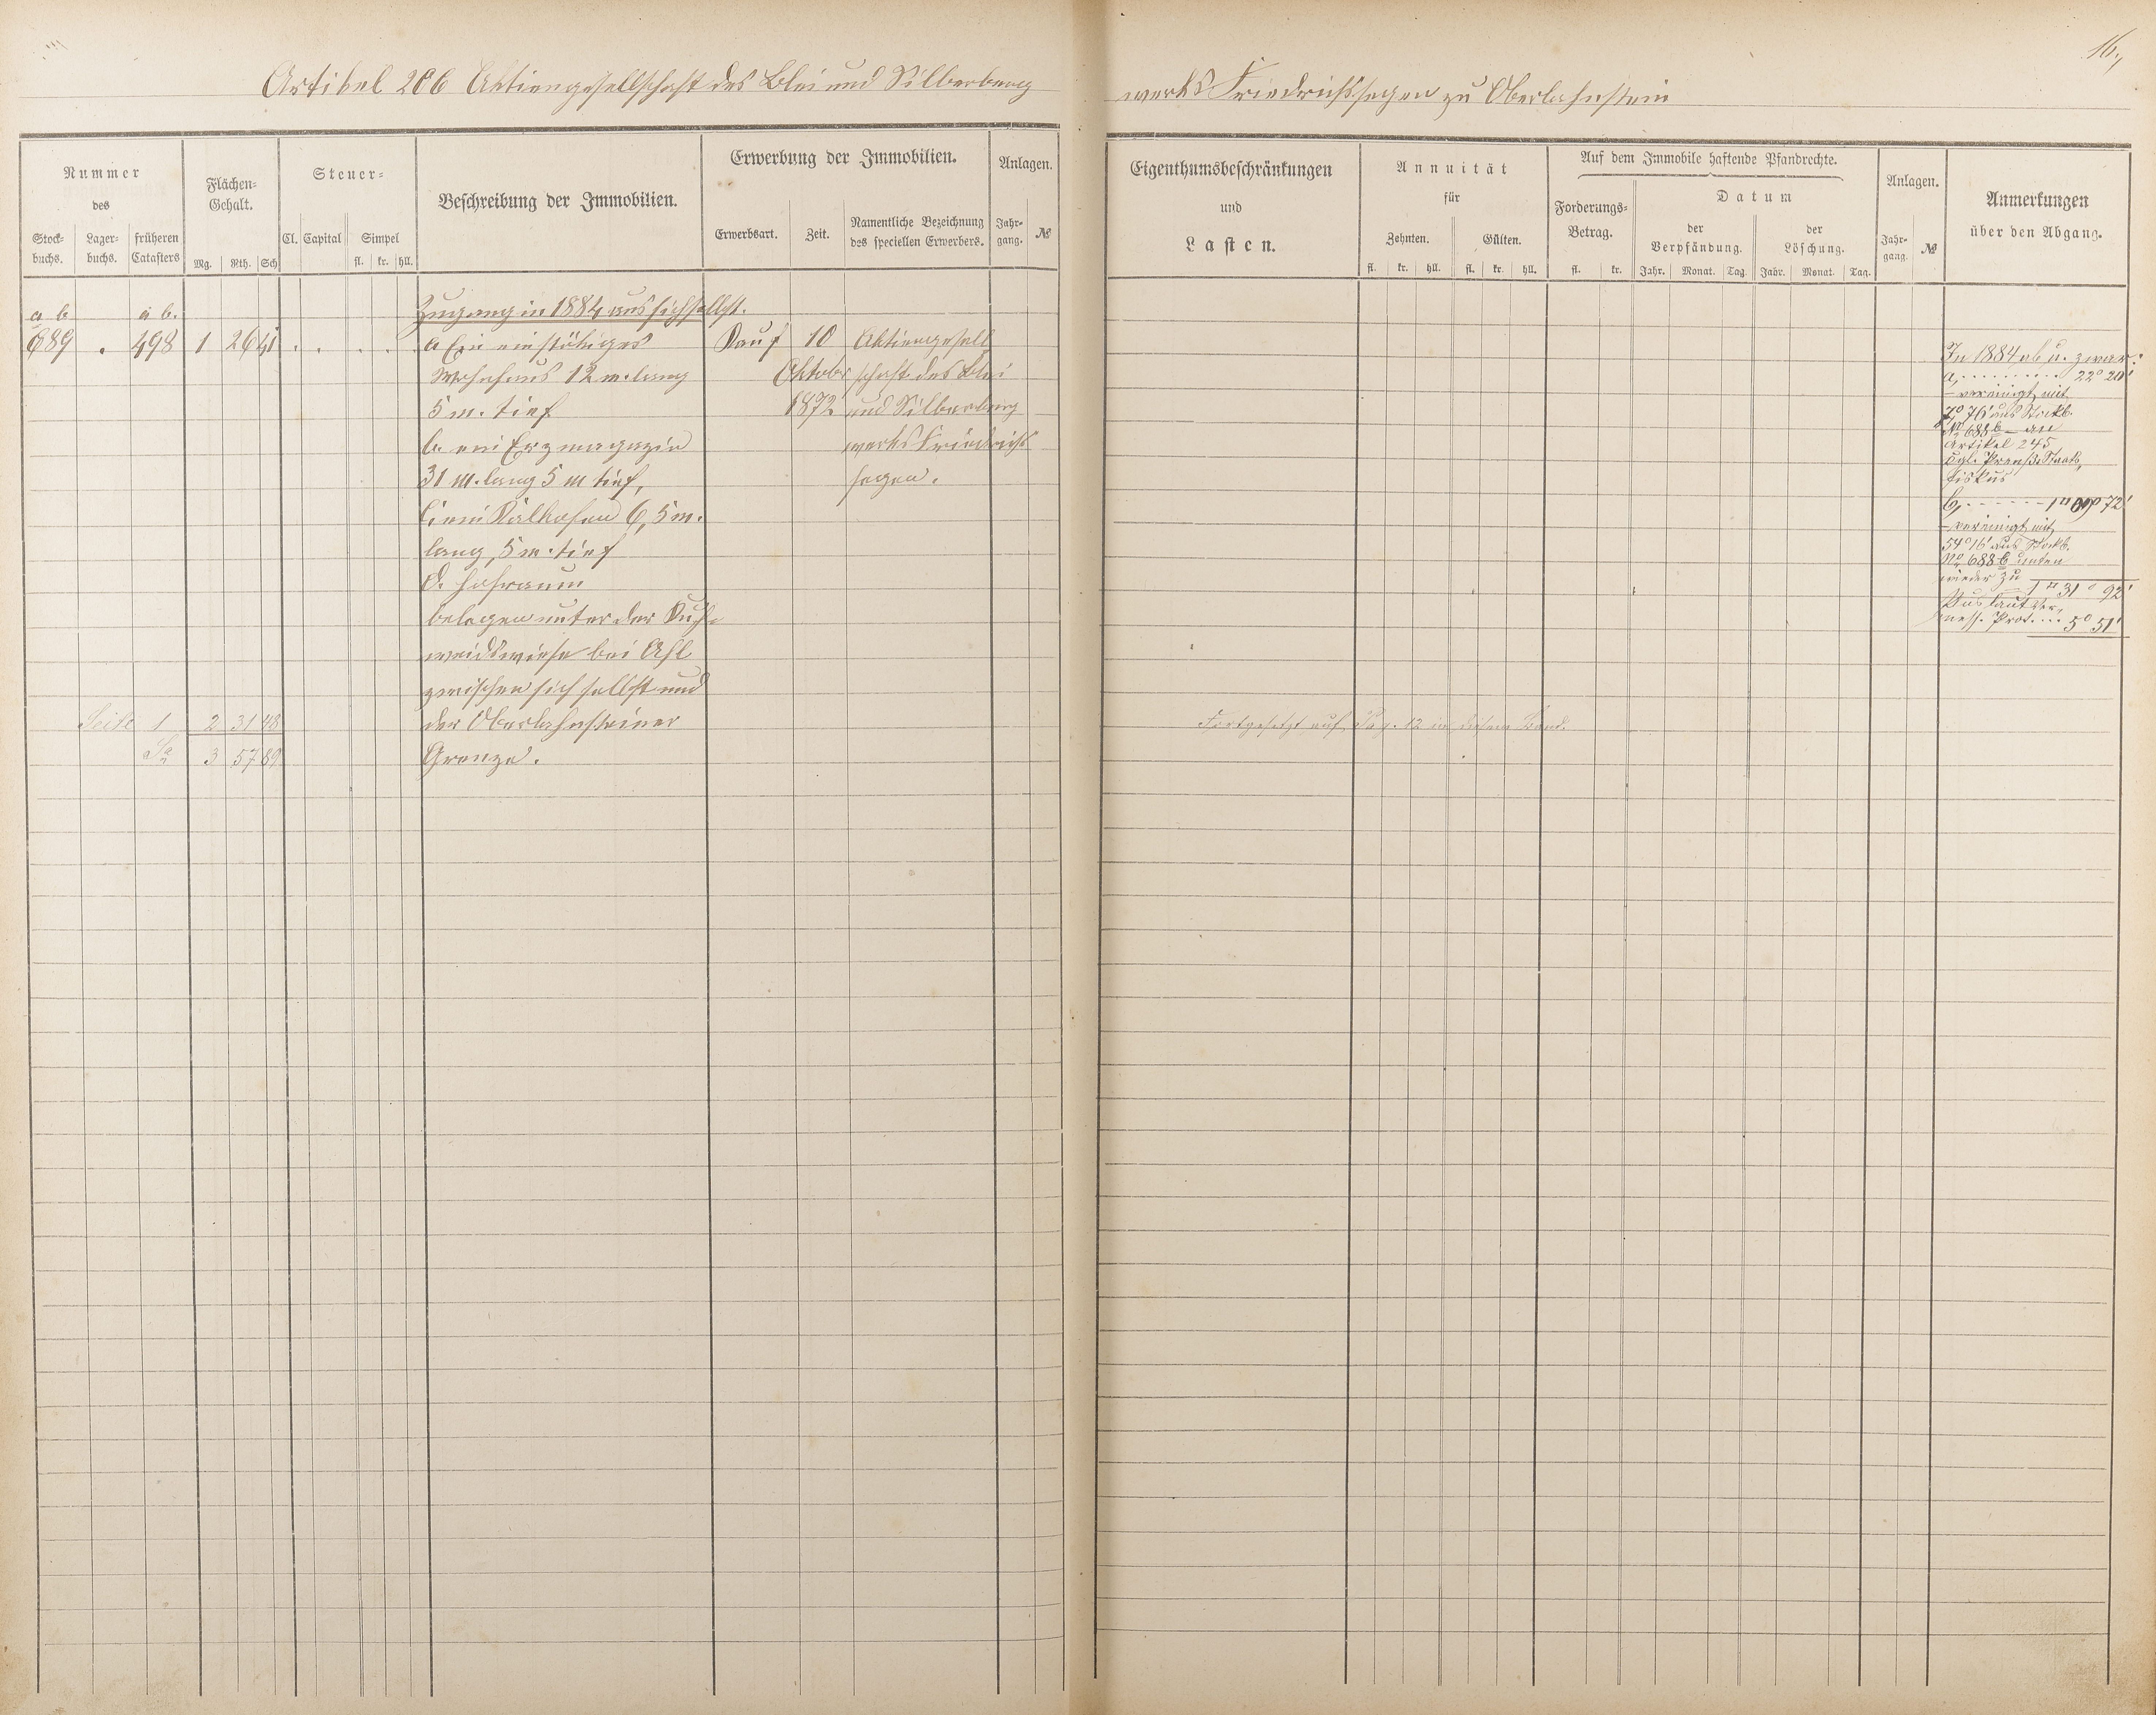 16,
Artikel 206 Aktiengesellschaft des Blei und Silberberg
werks Friedrichssegen zu Oberlahnstein
Nummer
des
Stock-
buchs.
Lager-
buchs.
früheren
Catasters
Flächen-
Gehalt.
Mg. Rth. Sch
Steuer-
Cl. Capital Simpel
fl. kr. hll.
Beschreibung der Immobilien.
Erwerbung der Immobilien.
Erwerbsart. Zeit.
Namentliche Bezeichnung
des speciellen Erwerbers.
Anlagen.
Jahr-
gang.
№
a b a b.
689 . 498 1 26 41 . . . . .
Zugang in 1884 aus sich selbst.
a Ein einstökiges
Wohnhaus 12 m. lang
5 m. tief
b. ein Erzmagazin
31 m. lang 5 m tief,
c. ein Kalkofen 6,5 m.
lang, 5 m. tief
d. Hofraum
belegen unter der Kuh-
weidswiese bei Ahl
zwischen sich selbst und
der Oberlahnsteiner
Grenze.
Kauf
10
Oktobr
1872
Aktiengesell
schaft des Blei
und Silberberg
werks Friedrichs
segen.
Seite 1 2 31 48
Sa 3 57 89
Eigenthumsbeschränkungen
und
Lasten.
Annuität
für
Zehnten. Gülten.
fl. kr. hll. fl. kr. hll.
Auf dem Immobile haftende Pfandrechte.
Forderungs-
Betrag.
fl. kr.
Datum
der
Verpfändung.
Jahr. Monat. Tag.
der
Löschung.
Jahr. Monat. Tag.
Anlagen.
Jahr-
gang.
№
Anmerkungen
über den Abgang.
In 1884 ab u. zwar:
a, . . . . . . . . . 22° 20'
– vereinigt mit
7° 76' aus Stockb.
№ 688 b – an
Artikel 245
Kgl. Preuß. Staats,
fiskus
b, . . . . . . 1 m 09° 72'
– vereinigt mit
54° 16' aus Stockb.
№ 688 b unten
wieder zu
1 m 31° 92'
Plus laut Ver,
mess. Prot. . . . 5° 51'
Fortgesetzt auf Pag. 12 in diesem Band.